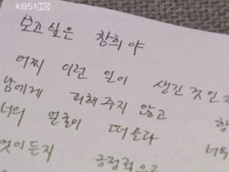 KBS1HD
보고 싶은 창희야
어찌 이런 일이 생긴 것인지
남에게 피해 주지 않고
너의 얼굴이 떠올라 너무
엇이든지 긍정적으로